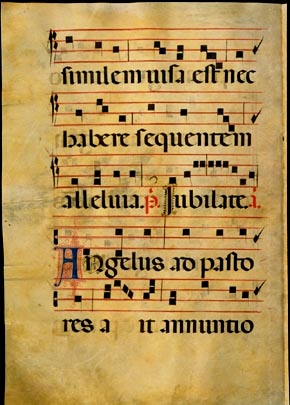 similem uisa est nec
habere sequentem
alleluia. p. Iubilate. a.
Angelus ad pasto
res a it annuntio